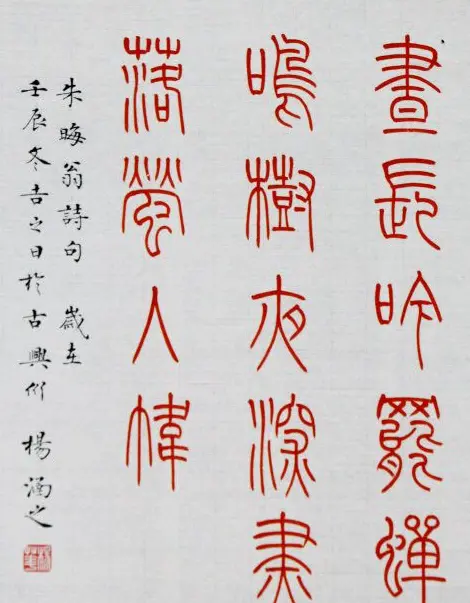 晝長吟罷蟬
鳴樹夜深㶳
落螢入幃
朱晦翁詩句 歲在
壬辰冬吉之日於古興州 楊涵之